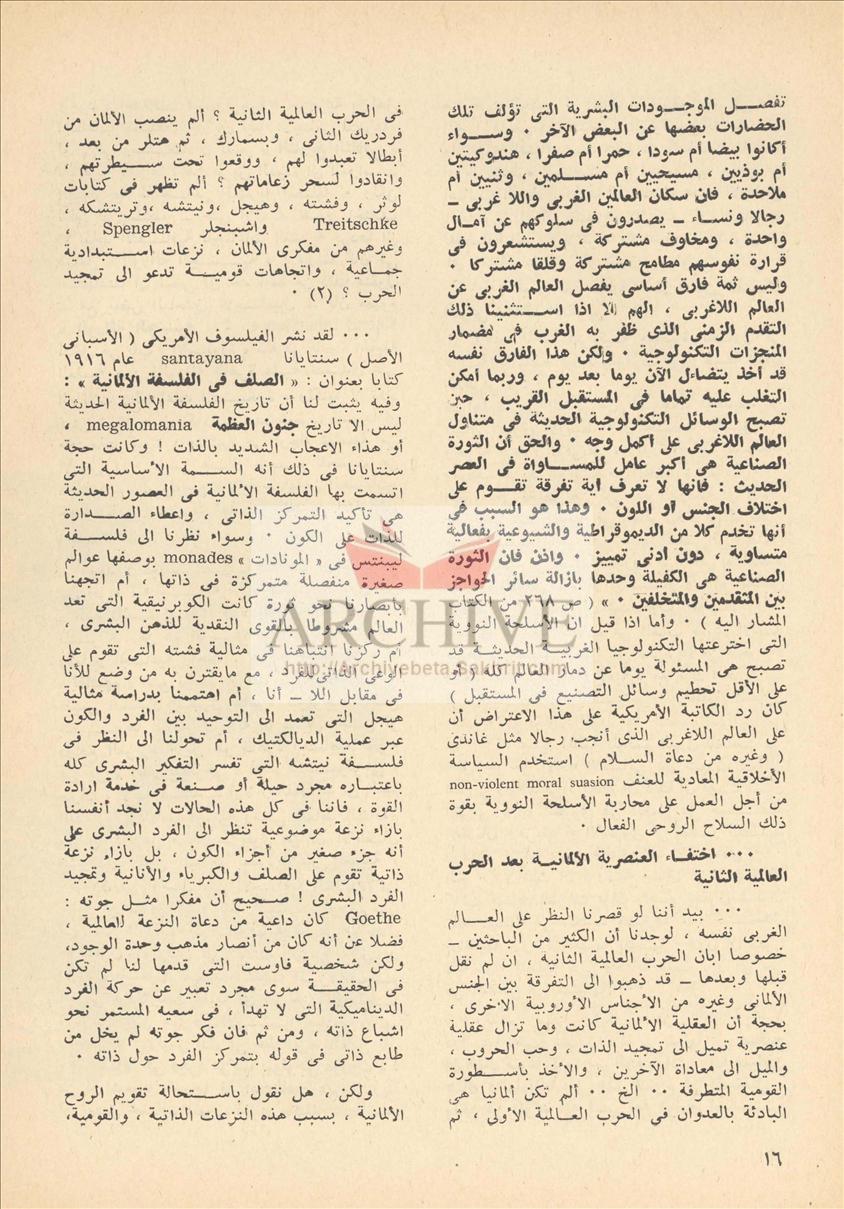 تفصل الموجودات البشرية التى تؤلف تلك
الحضارات بعضها عن البعض الآخر ٠ وسواء
أكانوا بيضا أم سودا ، حمرا أم صفرا ، هندوكيتين
أم بوذيين ، مسيحيين أم مسلمين ، وثنيين أم
ملاحدة ، فان سكان العالمين الغربى واللا غربى ـ
رجالا ونساء ـ يصدرون فى سلوكهم عن آمال
واحدة ، ومخاوف مشتركة ، ويستشعرون فى
قرارة نفوسهم مطامح مشتركة وقلقا مشتركا ٠
وليس ثمة فارق أساسى يفصل العالم الغربى عن
العالم اللاغربى ، الهم الا اذا استثنينا ذلك
التقدم الزمنى الذى ظفر به الغرب فى مضمار
المنجزات التكنولوجية ٠ ولكن هذا الفارق نفسه
قد أخذ يتضاءل الآن يوما بعد يوم ، وربما أمكن
التغلب عليه تماما فى المستقبل القريب ، حين
تصبح الوسائل التكنولوجية الحديثة فى متناول
العالم اللاغربى على أكمل وجه ٠ والحق أن الثورة
الصناعية هى أكبر عامل للمساواة فى العصر
الحديث : فانها لا تعرف أية تفرقة تقوم على
اختلاف الجنس أو اللون ٠ وهذا هو السبب فى
أنها تخدم كلا من الديموقراطية والشيوعية بفعالية
متساوية ، دون أدنى تمييز ٠ واذن فان الثورة
الصناعية هى الكفيلة وحدها بازالة سائر الحواجز
بين المتقدمين والمتخلفين ٠ » ( ص ٢٦٨ من الكتاب
المشار اليه ) ٠ وأما اذا قيل ان الأسلحة النووية
التى اخترعتها التكنولوجيا الغربية الحديثة قد
تصبح هى المسئولة يوما عن دمار العالم كله ( أو
على الأقل تحطيم وسائل التصنيع فى المستقبل )
كان رد الكاتبة الأمريكية على هذا الاعتراض أن
على العالم اللاغربى الذى أنجب رجالا مثل غاندى
( وغيره من دعاة السلام ) استخدم السياسة
الأخلاقية المعادية للعنف non-violent moral suasion
من أجل العمل على محاربة الأسلحة النووية بقوة
ذلك السلاح الروحى الفعال ٠
٠٠٠ اختفاء العنصرية الألمانية بعد الحرب
العالمية الثانية
٠٠٠ بيد أننا لو قصرنا النظر على العالم
الغربى نفسه ، لوجدنا أن الكثير من الباحثين ـ
خصوصا ابان الحرب العالمية الثانيه ، ان لم نقل
قبلها وبعدها ـ قد ذهبوا الى التفرقة بين الجنس
الألمانى وغيره من الأجناس الأوروبية الأخرى ،
بحجة أن العقلية الألمانية كانت وما تزال عقلية
عنصرية تميل الى تمجيد الذات ، وحب الحروب ،
والميل الى معاداة الآخرين ، والأخذ بأسطورة
القومية المتطرفة ٠٠ الخ ٠٠ ألم تكن ألمانيا هى
البادئة بالعدوان فى الحرب العالمية الأولى ، ثم
فى الحرب العالمية الثانية ؟ ألم ينصب الألمان من
فردريك الثانى ، وبسمارك ، ثم هتلر من بعد ،
أبطالا تعبدوا لهم ، ووقعوا تحت سيطرتهم ،
وانقادوا لسحر زعاماتهم ؟ ألم تظهر فى كتابات
لوثر ، وفشته ، وهيجل ،ونيتشه ،وتريتشكه ،
Treitschke واشبنجلر Spengler ،
وغيرهم من مفكرى الألمان ، نزعات استبدادية
جماعية ، واتجاهات قومية تدعو الى تمجيد
الحرب ؟ (٢) ٠
٠٠٠ لقد نشر الفيلسوف الأمريكى ( الأسبانى
الأصل ) سنتايانا santayana عام ١٩١٦
كتابا بعنوان : « الصلف فى الفلسفة الألمانية » :
وفيه يثبت لنا أن تاريخ الفلسفة الألمانية الحديثة
ليس الا تاريخ جنون العظمة megalomania ،
أو هذاء الاعجاب الشديد بالذات ! وكانت حجة
سنتايانا فى ذلك أنه السمة الأساسية التى
اتسمت بها الفلسفة الألمانية فى العصور الحديثة
هى تأكيد التمركز الذاتى ، واعطاء الصدارة
للذات على الكون ٠ وسواء نظرنا الى فلسفة
ليبنتس فى « المونادات » monades بوصفها عوالم
صغيرة منفصلة متمركزة فى ذاتها ، أم اتجهنا
بأبصارنا نحو ثورة كانت الكوبرنيقية التى تعد
العالم مشروطا بالقوى النقدية للذهن البشرى ،
أم ركزنا انتباهنا فى مثالية فشته التى تقوم على
الوعى الذاتى للفرد ، مع مايقترن به من وضع للأنا
فى مقابل اللا ـ أنا ، أم اهتممنا بدراسة مثالية
هيجل التى تعمد الى التوحيد بين الفرد والكون
عبر عملية الديالكتيك ، أم تحولنا الى النظر فى
فلسفة نيتشه التى تفسر التفكير البشرى كله
باعتباره مجرد حيلة أو صنعة فى خدمة ارادة
القوة ، فاننا فى كل هذه الحالات لا نجد أنفسنا
بازاء نزعة موضوعية تنظر الى الفرد البشرى على
أنه جزء صغير من أجزاء الكون ، بل بازاء نزعة
ذاتية تقوم على الصلف والكبرياء والأنانية وتمجيد
الفرد البشرى ! صحيح أن مفكرا مثل جوته :
Goethe كان داعية من دعاة النزعة العالمية ،
فضلا عن أنه كان من أنصار مذهب وحدة الوجود،
ولكن شخصية فاوست التى قدمها لنا لم تكن
فى الحقيقة سوى مجرد تعبير عن حركة الفرد
الديناميكية التى لا تهدأ ، فى سعيه المستمر نحو
اشباع ذاته ، ومن ثم فان فكر جوته لم يخل من
طابع ذاتى فى قوله بتمركز الفرد حول ذاته ٠
ولكن ، هل نقول باستحالة تقويم الروح
الألمانية ، بسبب هذه النزعات الذاتية ، والقومية،
١٦
ARCHIVE
http://Archivebeta.Sakhrit.com